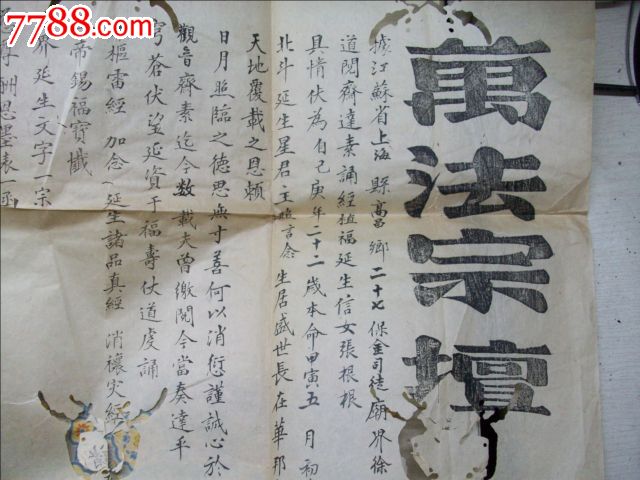 7788.com
萬法宗壇
據江蘇省上海縣高昌鄉二十七保金司徒廟界徐
道閱齊達素誦經植福延生信女張根根
具情伏為自己庚年二十二歲本命甲寅五月初
北斗延生星君主照言念生居盛世長在華那
天地覆載之恩賴
日月照臨之德思無寸善何以消愆謹誠心於
觀音齊素迄今数載夫曾繳閱今當奏達乎
穹蒼伏望延資于福壽仗道虔誦
樞雷經加念延生諸品真經消禳災經
帝錫福寶懺
界延生文字一宗
酬恩墨表一函